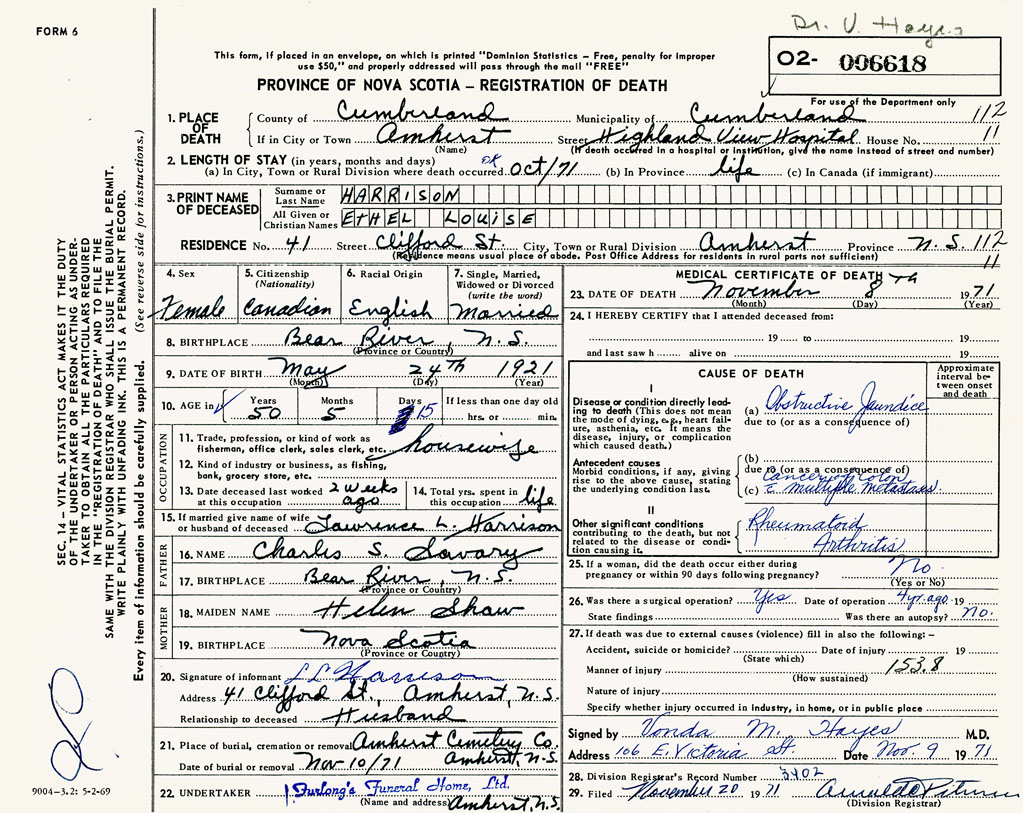 FORM 6
Dr. V. Hayes
This form, if placed in an envelope, on which is printed "Dominion Statistics – Free, penalty for improper
use $50," and properly addressed will pass through the mail "FREE"
02- 006618
PROVINCE OF NOVA SCOTIA – REGISTRATION OF DEATH
For use of the Department only
1. PLACE OF DEATH County of Cumberland Municipality of Cumberland 112
If in City or Town Amherst Street Highland View Hospital House No. 11
(Name) (If death occurred in a hospital or institution, give the name instead of street and number)
2. LENGTH OF STAY (in years, months and days)
(a) In City, Town or Rural Division where death occurred OK Oct/71 (b) In Province life (c) In Canada (if immigrant)
3. PRINT NAME OF DECEASED Surname or Last Name HARRISON
All Given or Christian Names ETHEL LOUISE
RESIDENCE No. 41 Street Clifford St. City, Town or Rural Division Amherst Province N.S. 112
(Residence means usual place of abode. Post Office Address for residents in rural parts not sufficient) 11
SEC. 14 – VITAL STATISTICS ACT MAKES IT THE DUTY
OF THE UNDERTAKER OR PERSON ACTING AS UNDER-
TAKER TO OBTAIN ALL THE PARTICULARS REQUIRED
IN THE "REGISTRATION OF DEATH" AND TO FILE THE
SAME WITH THE DIVISION REGISTRAR WHO SHALL ISSUE THE BURIAL PERMIT.
WRITE PLAINLY WITH UNFADING INK. THIS IS A PERMANENT RECORD.
Every item of information should be carefully supplied. (See reverse side for instructions.)
4. Sex Female
5. Citizenship (Nationality) Canadian
6. Racial Origin English
7. Single, Married, Widowed or Divorced (write the word) Married
8. BIRTHPLACE Bear River, N.S.
(Province or Country)
9. DATE OF BIRTH May 24th 1921
(Month) (Day) (Year)
10. AGE in Years 50 Months 5 Days 15 If less than one day old
hrs. or min.
OCCUPATION
11. Trade, profession, or kind of work as
fisherman, office clerk, sales clerk, etc. housewife
12. Kind of industry or business, as fishing,
bank, grocery store, etc.
13. Date deceased last worked at this occupation 2 weeks ago
14. Total yrs. spent in this occupation life
15. If married give name of wife
or husband of deceased Lawrence L. Harrison
FATHER
16. NAME Charles S. Savary
17. BIRTHPLACE Bear River, N.S.
(Province or Country)
MOTHER
18. MAIDEN NAME Helen Shaw
19. BIRTHPLACE Nova Scotia
(Province or Country)
20. Signature of informant LL Harrison
Address 41 Clifford St., Amherst, N.S.
Relationship to deceased Husband
21. Place of burial, cremation or removal Amherst Cemetery Co.
Date of burial or removal Nov 10/71 Amherst, N.S.
22. UNDERTAKER Furlong's Funeral Home, Ltd.
(Name and address) Amherst, N.S.
9004-3.2: 5-2-69
MEDICAL CERTIFICATE OF DEATH
23. DATE OF DEATH November 8th 1971
(Month) (Day) (Year)
24. I HEREBY CERTIFY that I attended deceased from:
19 to 19
and last saw h alive on 19
CAUSE OF DEATH
Approximate interval between onset and death
I
Disease or condition directly leading to death (This does not
mean the mode of dying, e.g., heart failure, asthenia, etc. If means the
disease, injury, or complication
which caused death.)
(a) Obstructive Jaundice
due to (or as a consequence of)
Antecedent causes
Morbid conditions, if any, giving
rise to the above cause, stating
the underlying condition last.
(b)
due to (or as a consequence of)
Cancer of Colon
(c) c multiple metastases
II
Other significant conditions
contributing to the death, but not
related to the disease or condition causing it.
Rheumatoid
Arthritis
25. If a woman, did the death occur either during
pregnancy or within 90 days following pregnancy? No.
(Yes or No)
26. Was there a surgical operation? Yes Date of operation 4 yr. ago 19
State findings Was there an autopsy? No.
27. If death was due to external causes (violence) fill in also the following: –
Accident, suicide or homicide? Date of injury 19
(State which)
Manner of injury 153.8
(How sustained)
Nature of injury
Specify whether injury occurred in industry, in home, or in public place
Signed by Vonda M. Hayes M.D.
Address 106 E. Victoria St. Date Nov. 9 1971
28. Division Registrar's Record Number 3402
29. Filed November 20 1971
(Division Registrar)